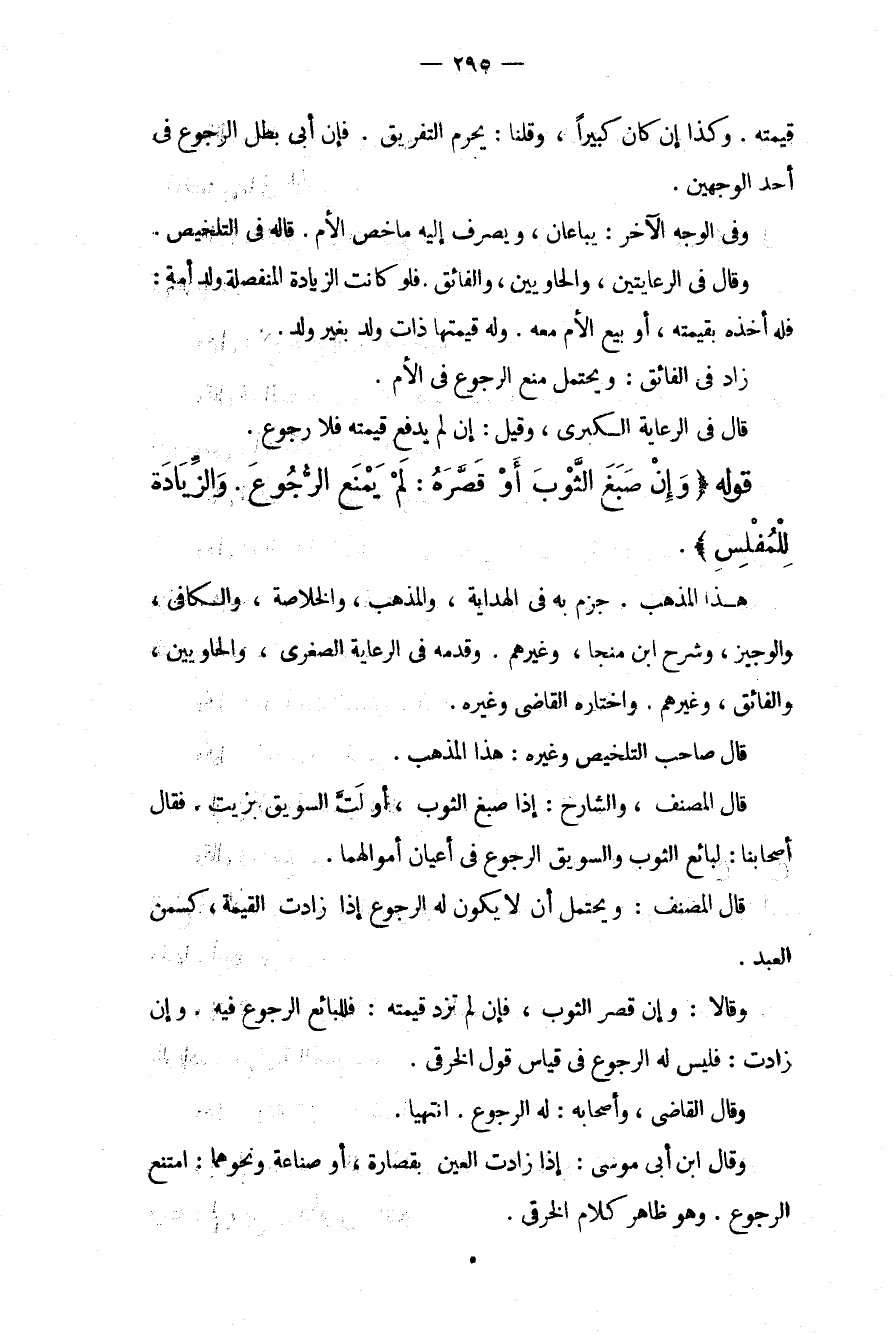 — ٢٩٥ —
قيمته . وكذا إن كان كبيراً ، وقلنا : يحرم التفريق . فإن أبى بطل الرجوع فى
أحد الوجهين .
وفى الوجه الآخر : يباعان ، ويصرف إليه ماخص الأم . قاله فى التلخيص .
وقال فى الرعايتين ، والحاويين ، والفائق . فلو كانت الزيادة المنفصلة ولد أمة :
فله أخذه بقيمته ، أو بيع الأم معه . وله قيمتها ذات ولد بغير ولد .
زاد فى الفائق : ويحتمل منع الرجوع فى الأم .
قال فى الرعاية الكبرى ، وقيل : إن لم يدفع قيمته فلا رجوع .
قوله ﴿ وَإِنْ صَبَغَ الثَّوْبَ أَوْ قَصَّرَهُ : لَمْ يَمْنَعِ الرُّجُوعَ . وَالزِّيَادَة
لِلْمُفْلِسِ ﴾ .
هـذا المذهب . جزم به فى الهداية ، والمذهب ، والخلاصة ، والـكافى ،
والوجيز ، وشرح ابن منجا ، وغيرهم . وقدمه فى الرعاية الصغرى ، والحاويين ،
والفائق ، وغيرهم . واختاره القاضى وغيره .
قال صاحب التلخيص وغيره : هذا المذهب .
قال المصنف ، والشارح : إذا صبغ الثوب ، أو لَتَّ السويق بزيت . فقال
أصحابنا : لبائع الثوب والسويق الرجوع فى أعيان أموالهما .
قال المصنف : ويحتمل أن لا يكون له الرجوع إذا زادت القيمة ، كسمن
العبد .
وقالا : وإن قصر الثوب ، فإن لم تزد قيمته : فللبائع الرجوع فيه . وإن
زادت : فليس له الرجوع فى قياس قول الخرقى .
وقال القاضى ، وأصحابه : له الرجوع . انتهيا .
وقال ابن أبى موسى : إذا زادت العين بقصارة ، أو صناعة ونحوهما : امتنع
الرجوع . وهو ظاهر كلام الخرقى .